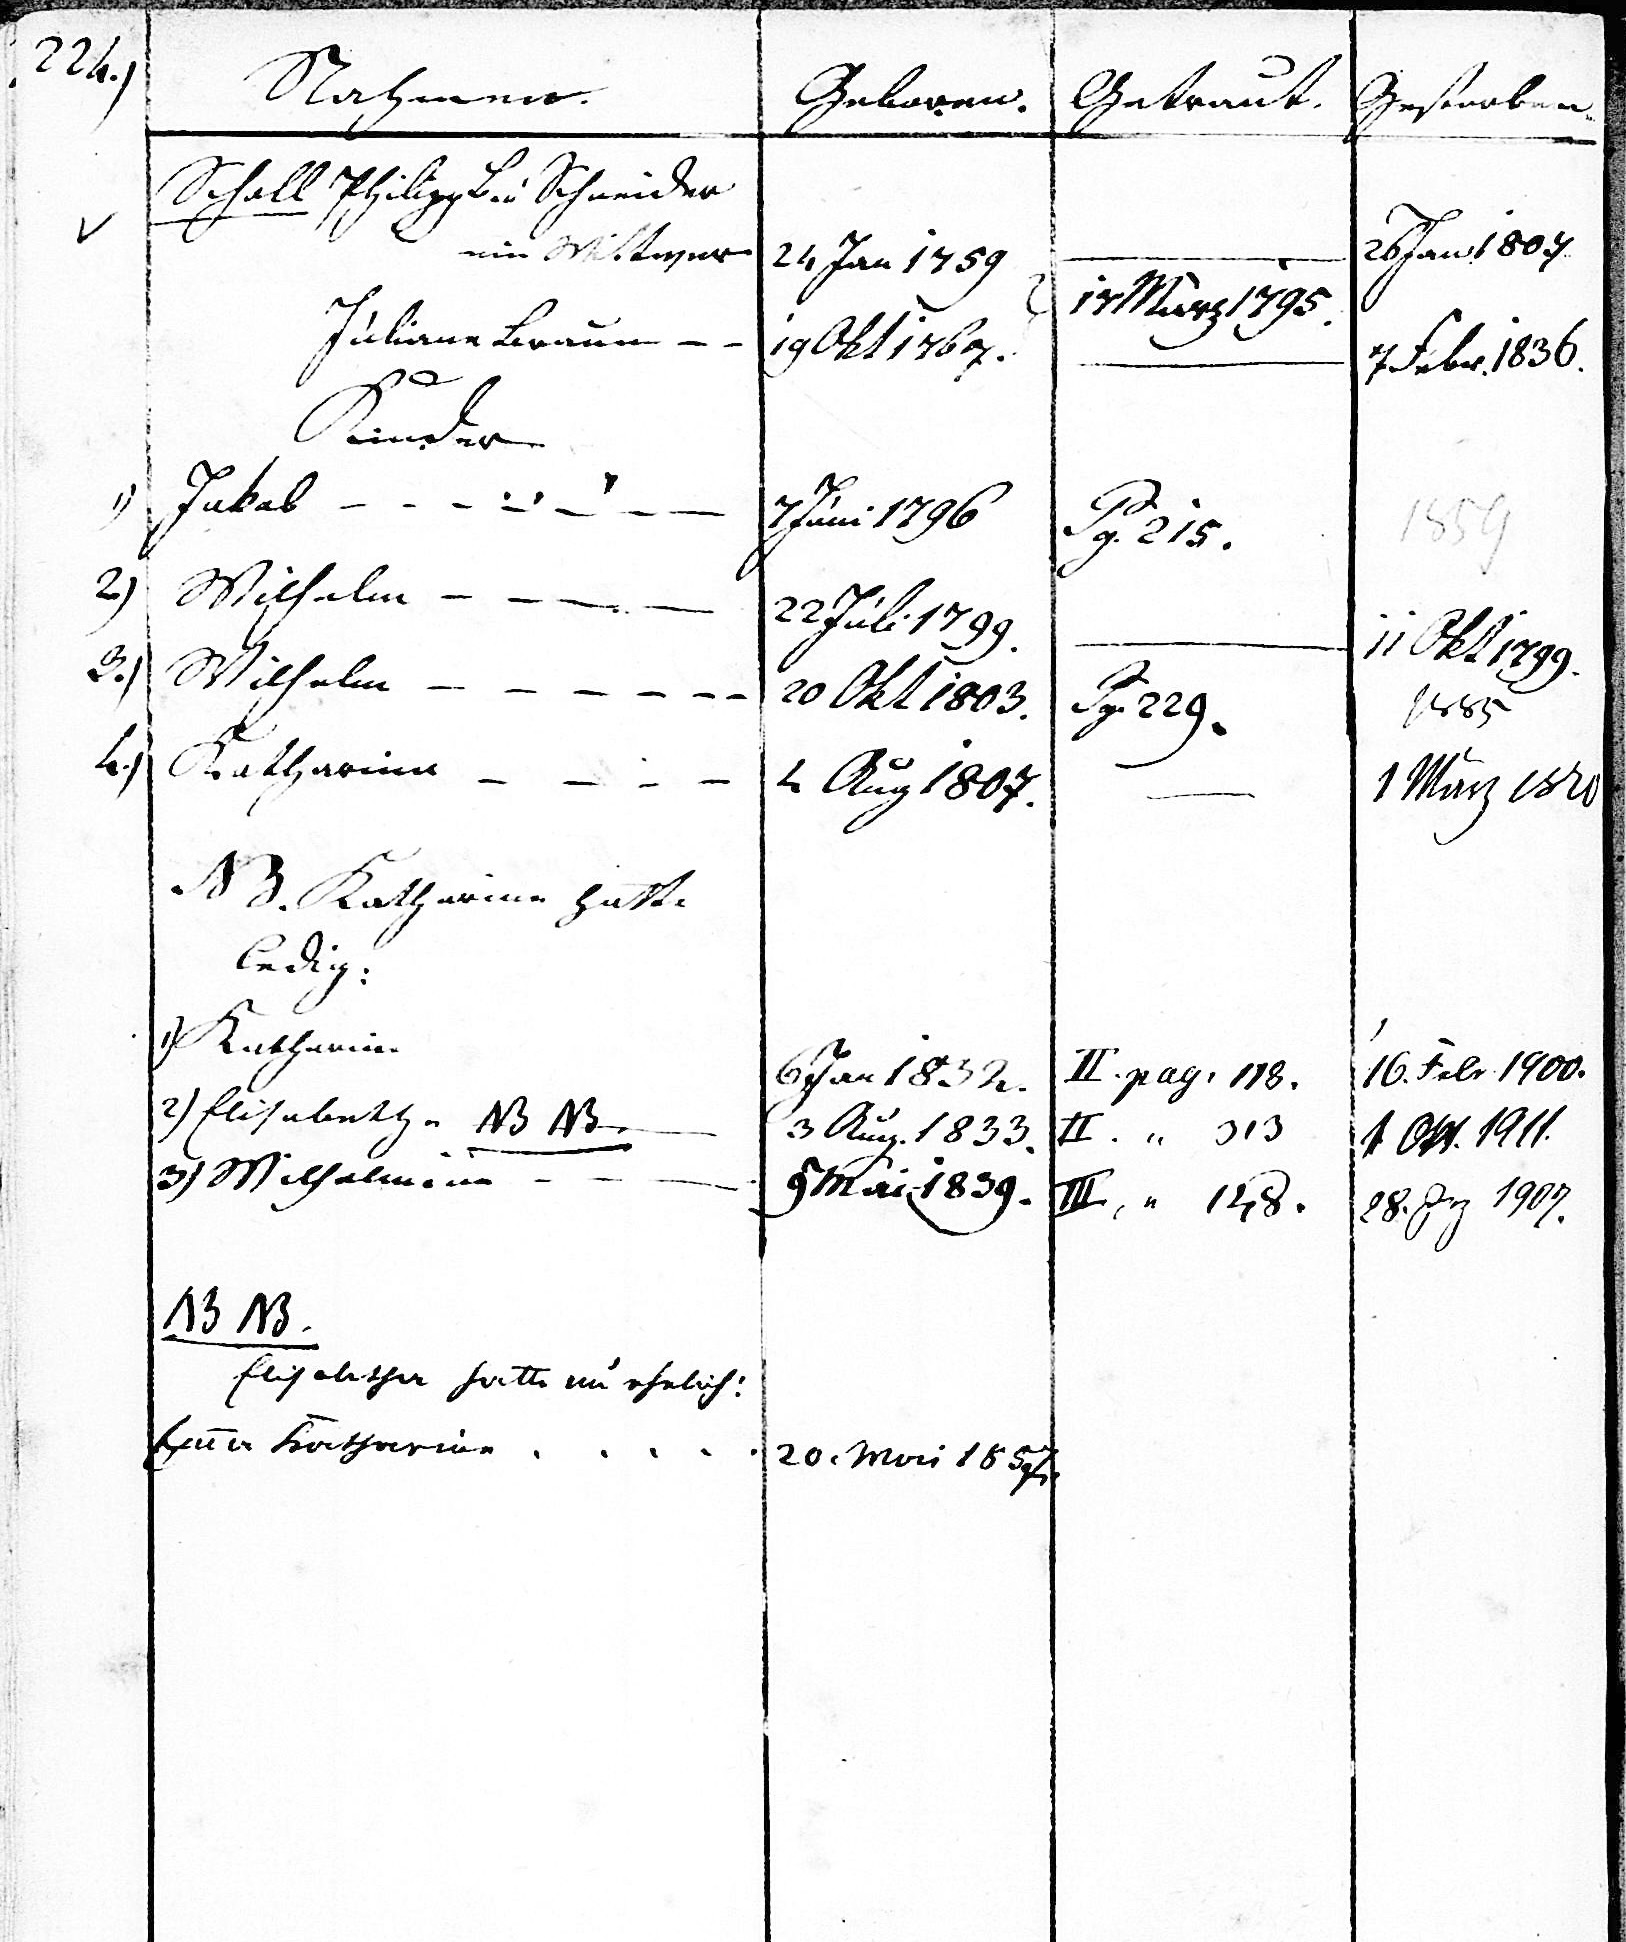 224.)
Nahmen. Geboren. Getraut. Gestorben.
Schall Philipp L. Schneider
ein Wittwer 24 Jan 1759 26 Jan 1807
17 März 1795.
Juliane Braun – – 19 Okt 1767. 7 Febr. 1836.
Kinder
1) Jakob – – – – – – – 7 Juni 1796 Pg. 215. 1859
2) Wilhelm – – – – 22 Juli 1799. 11 Okt 1799.
3.) Wilhelm – – – – – – – 20 Okt 1803. Pg. 229. 1885
4.) Katharina – – – – – 4 Aug 1807. — 1 März 1820
NB. Katharina hatte
ledig:
1) Katharina 6 Jan 1832. II. pag. 118. 16. Febr. 1900.
2) Elisabetha NB NB. 3 Aug. 1833. II. " 313 1 Okt. 1911.
3) Wilhelmine – – – 9 Mai 1839. III, " 148. 28. 1907.
NB NB.
Elisabetha hatte unehelich:
Katharina . . . . . 20. Mai 1857.